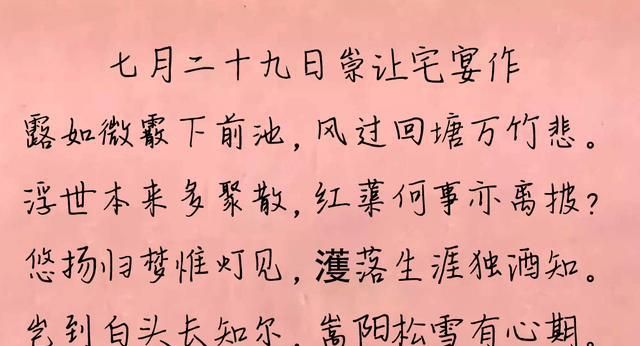 七月二十九日崇让宅宴作
露如微霰下前池,风过回塘万竹悲。
浮世本来多聚散,红蕖何事亦离披?
悠扬归梦惟灯见,濩落生涯独酒知。
岂到白头长知尔,嵩阳松雪有心期。